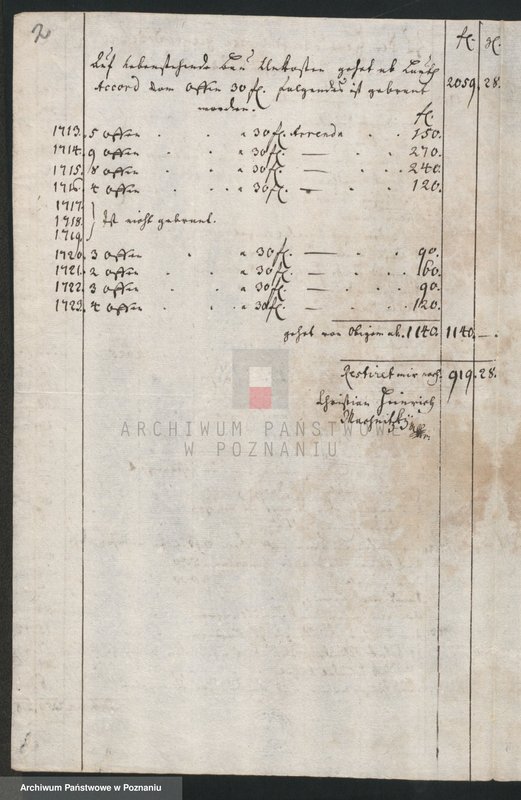 2
fl. gl.
Auf obenstehende Bau Unkosten gehet ab Lauth
Accord vom Offen 30 fl. folgendes ist gebrant 2059. 28.
worden. fl.
1713. 5 Offen . . . a 30 fl. Arrenda . . 150.
1714. 9 Offen . . . a 30 fl. — . . 270.
1715. 8 Offen . . . a 30 fl. — . . 240.
1716. 4 Offen . . . a 30 fl. — . . 120.
1717.
1718. } Ist nicht gebrant.
1719.
1720. 3 Offen . . . a 30 fl. — . . 90.
1721. 2 Offen . . . a 30 fl. — . . 160.
1722. 3 Offen . . . a 30 fl. — . . 90.
1723. 4 Offen . . . a 30 fl. — . . 120.
gehet von obigem ab. 1140. 1140. —.
Restiret mir noch. 919. 28.
Christian Heinrich
ARCHIWUM PAŃSTWOWE
W POZNANIU
Archiwum Państwowe w Poznaniu